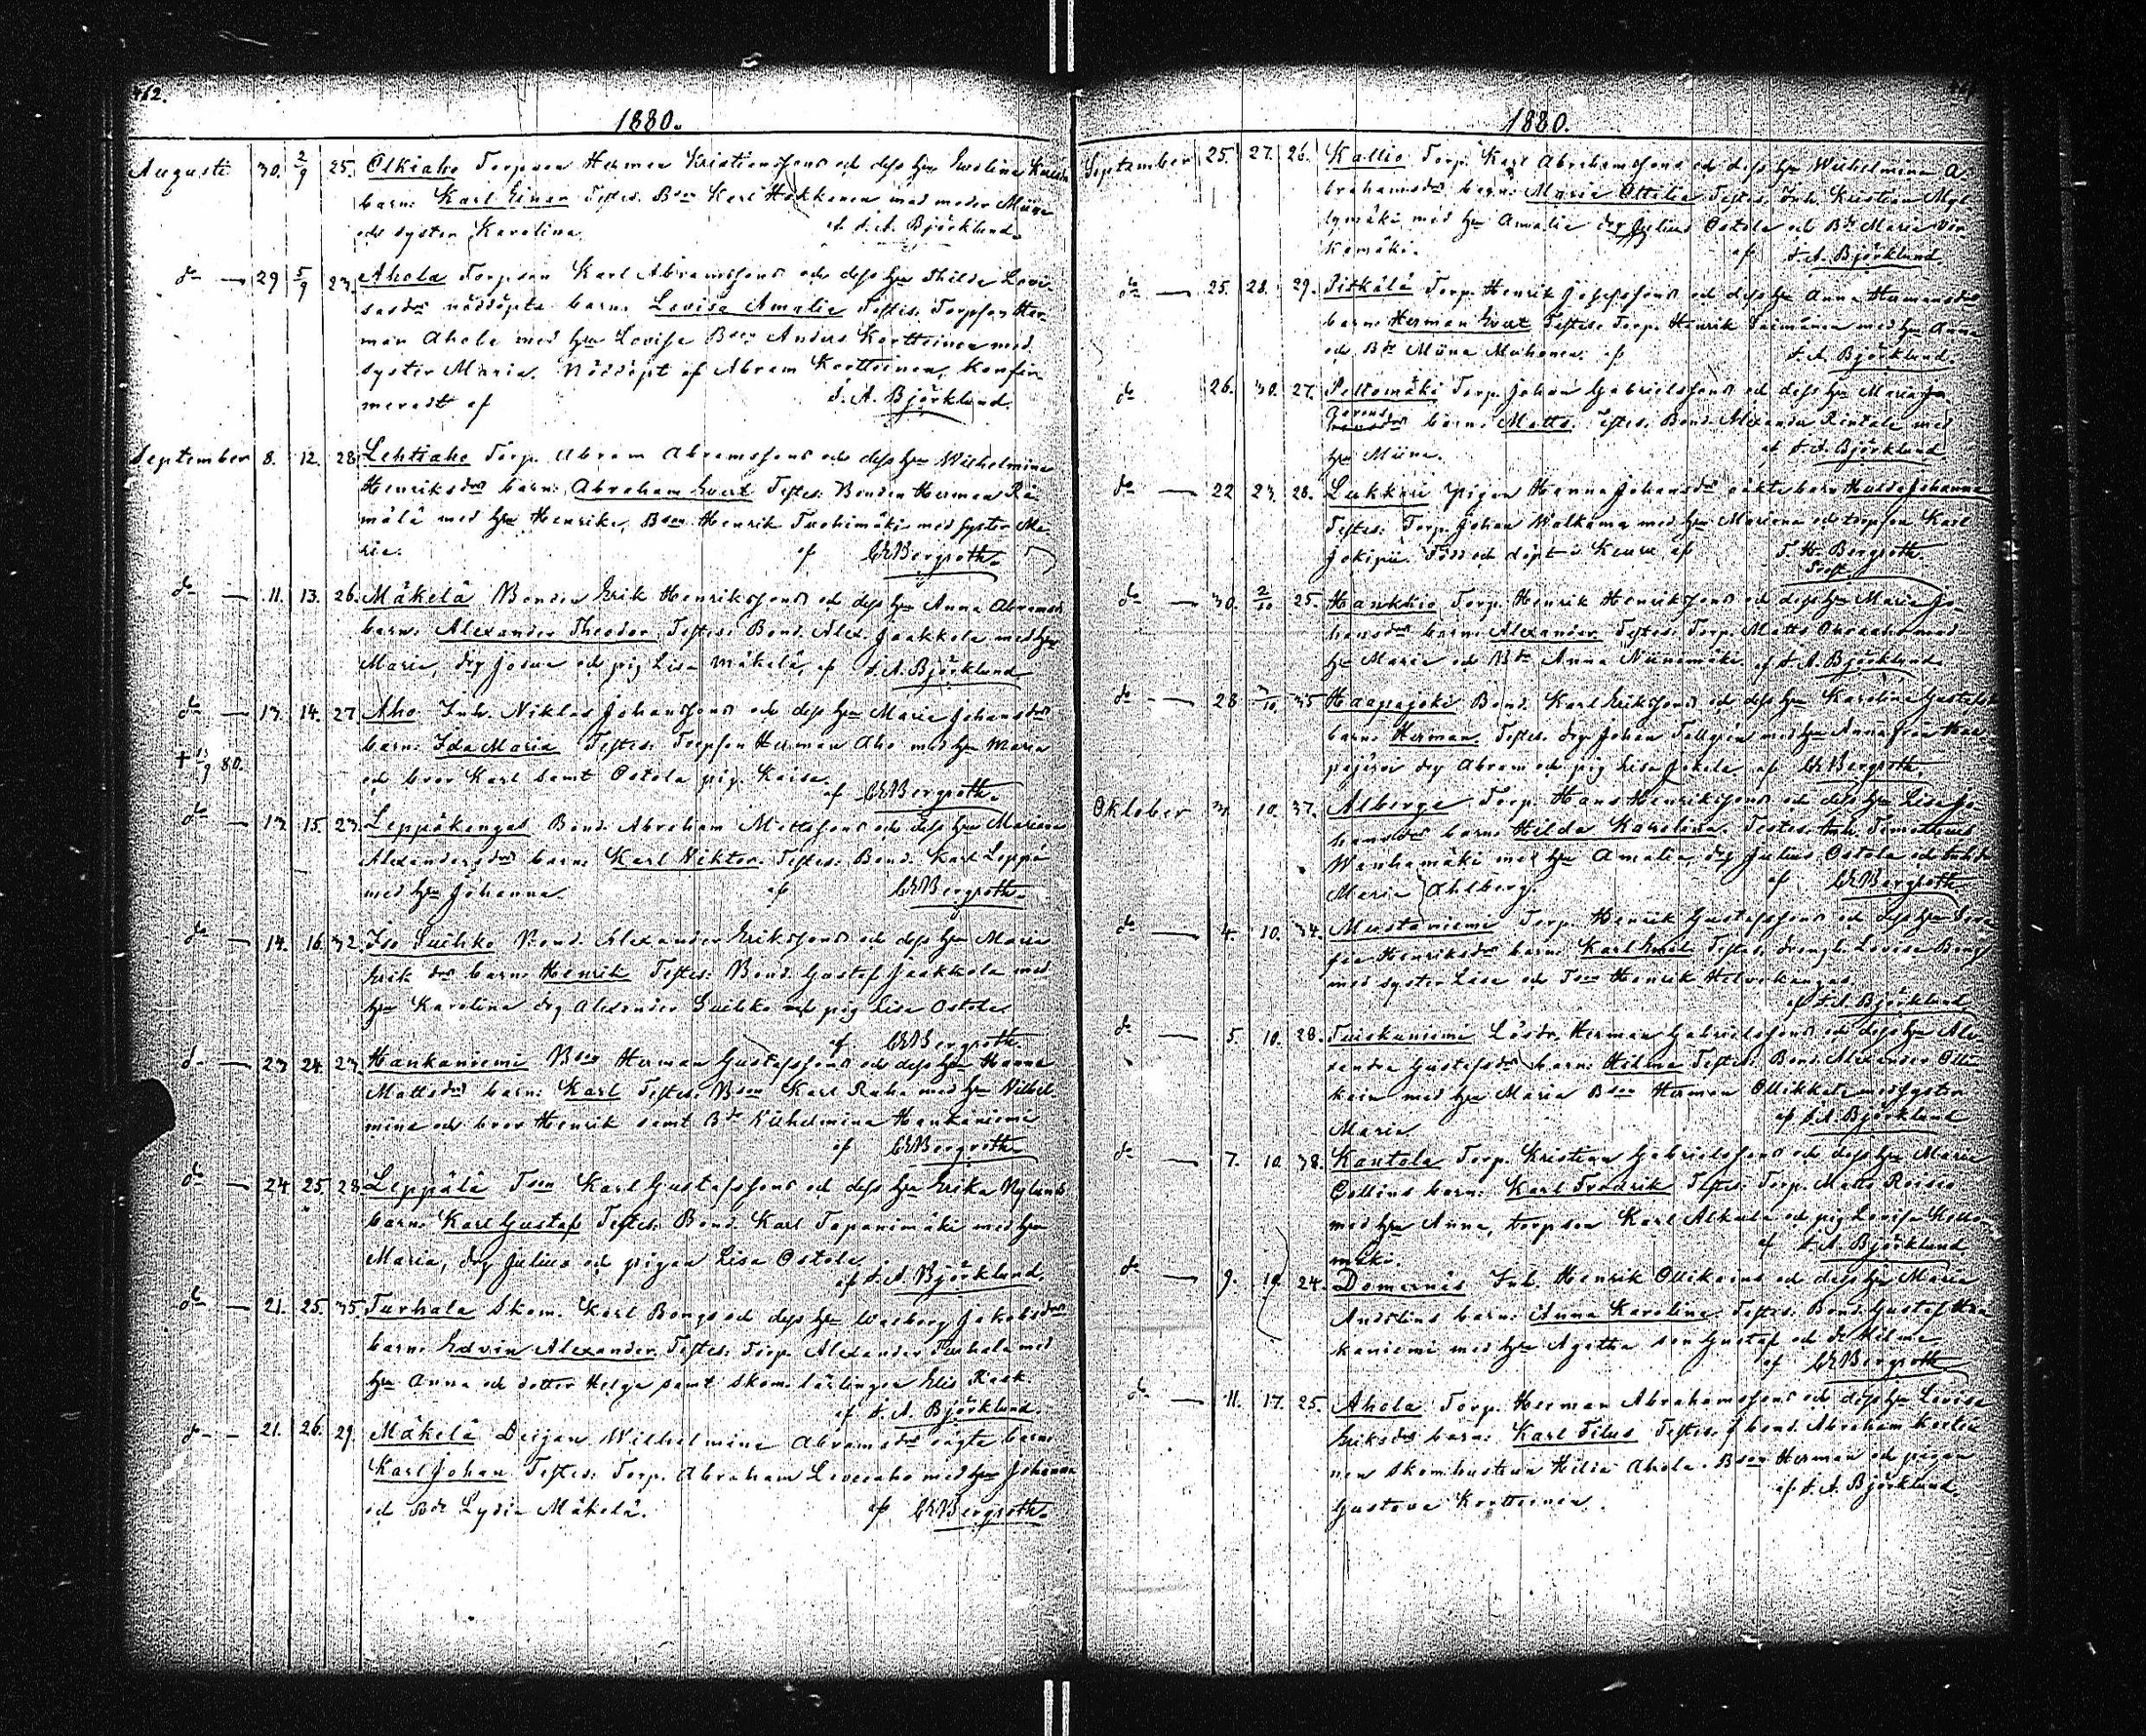 462.
1880.
Augusti 30. 2/9 25. Olkiaho Torpson Herman Kristiansson och dess hu Evelina
barn: Karl Einar Testes: Bson Karl Hokkanen med moder Miina
och syster Karolina. af F. A. Björklund.
do — 29 5/9 23. Ahola Torpson Karl Abramsson och dess hu Thilda Lovi-
sasdr nöddöpta barn: Lovisa Amalia Testes: Torpson Her-
man Ahola med hu Lovisa Bson Anders Kortteinen med
syster Maria. Nöddöpt af Abram Kortteinen, Konfir-
meradt af F. A. Björklund.
September 8. 12. 28. Lehtiaho Torp. Abram Abramsson och dess hu Wilhelmina
Henriksdr barn: Abraham Evert Testes: Bonden Herman Rä-
mälä med hu Henrika, Bson Henrik Tuohimäki med syster Ma-
ria. af Bergroth.
do — 11. 13. 26. Mäkelä Bonden Erik Henriksson och dess hu Anna Abramsdr
barn: Alexander Theodor Testes: Bond. Alex. Jaakkola med hu
Maria, drg Josua och pig Lisa Mäkelä, af F. A. Björklund
do — 13. 14. 27 Aho Inh. Niklas Johansson och dess hu Maria Johansdr
barn: Ida Maria Testes: Torpson Herman Aho med hu Maria
+ 19/9 80.
och bror Karl samt Ostola pig. Kaisa. af Bergroth.
do — 13. 15. 23. Leppäkangas Bond. Abraham Mattsson och dess hu Mariana
Alexandersdr barn: Karl Viktor. Testes: Bond. Karl Leppä
med hu Johanna. af Bergroth.
do — 14. 16. 32. Iso Suihko Bond. Alexander Eriksson och dess hu Maria
Eriksdr barn: Henrik Testes: Bond. Gustaf Jaakkola med
hu Karolina drg Alexander Suihko och pig Lisa Ostola.
af Bergroth.
do — 23 24. 23. Hankaniemi Bson Herman Gustafsson och dess hu Hanna
Mattsdr barn: Karl Testes: Bson Karl Raha med hu Wilhel-
mina och bror Henrik samt Bdr Wilhelmina Hankaniemi
af Bergroth.
do — 24. 25. 28. Leppälä Tson Karl Gustafsson och dess hu Erika Nylund
barn: Karl Gustaf Testes: Bond. Karl Tapanimäki med hu
Maria, drg Julius och pigan Lisa Ostola.
af F. A. Björklund.
do — 21. 25. 35. Turhala Skom. Karl Borgs och dess hu Walborg Jakobsdr
barn: Edvin Alexander Testes: Torp. Alexander Turhala med
hu Anna och dotter Helga samt Skom. lärlingen Elis Rask
af F. A. Björklund.
do — 21. 26. 29. Mäkelä Deijan Wilhelmina Abramsdr oägta barn
Karl Johan Testes: Torp. Abraham Liveraho med hu Johanna
och Bdr Lydia Mäkelä. af Bergroth.
1880.
September 25. 27. 26. Kallio Torp. Karl Abrahamsson och dess hu Wilhelmina A-
brahamsdr barn: Maria Ottilia Testes: Inh. Kristian Myl-
lymäki med hu Amalia drg Julius Ostola och Bdr Maria Vir-
kamäki. af F. A. Björklund
do — 25. 28. 29. Piskälä Torp. Henrik Josefsson och dess hu Anna Hermansdr
barn: Herman Evert Testes: Torp. Henrik med hu Anna
och Bdr Miina Muhonen. af F. A. Björklund.
do 26. 30. 27. Peltomäki Torp. Johan Gabrielsson och dess hu Maria
barn: Matts. Testes: Bond. Alexander Rintala med
hu Miina. af F. A. Björklund
do — 22 23. 26. Lukkari Pigan Hanna Johansdr oäkta barn Hulda Johanna
Testes: Torp. Johan Walkama med hu Mariana och torpson Karl
Jokipii. Född och döpt i Keuru af F. H. Bergroth
Prost.
do — 30. 2/10 25. Haukkio Torp. Henrik Henriksson och dess hu Maria Jo-
hansdr barn: Alexander Testes: Torp. Matts Oksaaho med
hu Maria och Bdr Anna Niinimäki. af F. A. Björklund.
do — 28 3/10. 35 Haapajoki Bond. Karl Eriksson och dess hu Karolina Gustafsdr
barn: Herman. Testes: drg Johan med hu Anna från Haa-
pajärvi drg Abram och pig Lisa Jokela af Bergroth.
Oktober 3. 10. 37. Alberga Torp. Hans Henriksson och dess hu Lisa Jo-
hansdr barn: Hilda Karolina. Testes: Inh. Timotheus
Wanhamäki med hu Amalia, drg Julius Ostola och
Maria Ahlberg. af Bergroth
do — 4. 10. 34. Mustaniemi Torp. Henrik Gustafsson och dess hu Lovi-
sa Henriksdr barn: Karl Emil Testes: Lovisa Borg
med syster Lisa och Tson Henrik Helvekangas.
af F. A. Björklund
do — 5. 10. 28. Tuiskuniemi Lösdr. Herman Gabrielsson och dess hu Ale-
xandra Gustafsdr barn: Hilma Testes: Bond. Alexander Olli-
kain med hu Maria Bson Herman Ollikkala med syster
Maria. af F. A. Björklund
do — 7. 10. 38. Kantola Torp. Kristian Gabrielsson och dess hu Maria
Collins barn: Karl Fredrik Testes: Torp. Matts Roisio
med hu Anna, torpson Karl Alkula och pig Lovisa
mäki. af F. A. Björklund
do — 9. 19. 24. Domarnäs Inh. Henrik Ollikains och dess hu Maria
barn: Anna Karolina Testes: Bond. Gustaf Han-
kaniemi med hu Agatha son Gustaf och dr Hilma
af Bergroth
do — 11. 17. 25. Ahola Torp. Herman Abrahamsson och dess hu Lovisa
Eriksdr barn: Karl Titus Testes: f bond. Abraham Kortei-
nen Skomhustrun Hilda Ahola. Bson Herman och pigan
Gustava Kortteinen. af F. A. Björklund.